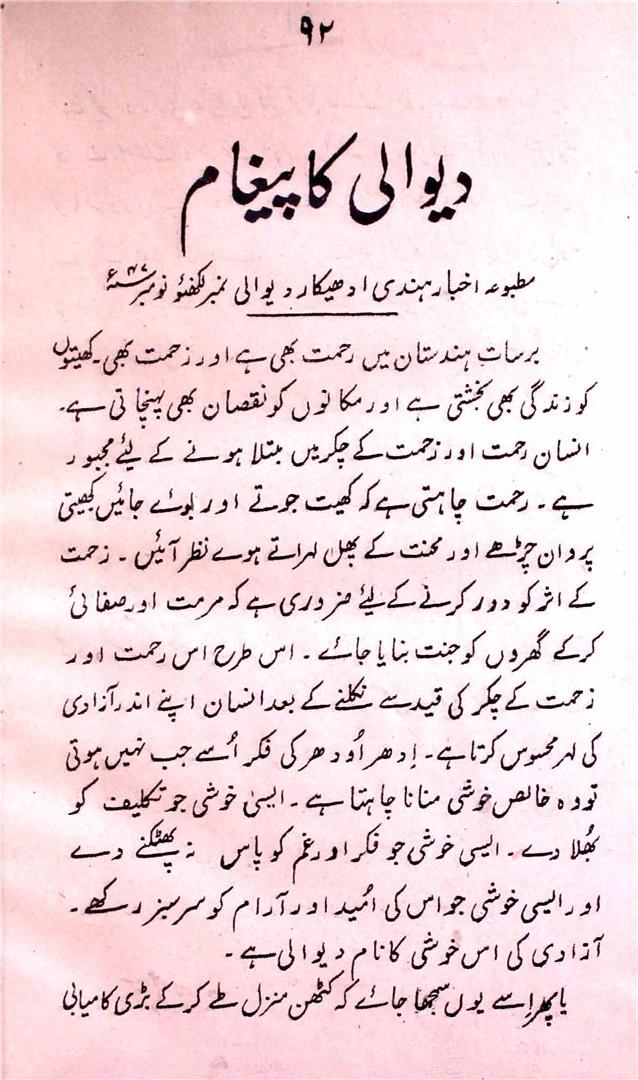 ۹۲
دیوالی کا پیغام
مطبوعہ اخبار ہندی ادھیکار دیوالی نمبر لکھنؤ نومبر ۴۷ء
برسات ہندستان میں رحمت بھی ہے اور زحمت بھی۔ کھیتوں
کو زندگی بھی بخشتی ہے اور مکانوں کو نقصان بھی پہنچاتی ہے۔
انسان رحمت اور زحمت کے چکر میں مبتلا ہونے کے لیٔے مجبور
ہے۔ رحمت چاہتی ہے کہ کھیت جوتے اور بوئے جائیں کھیتی
پروان چڑھے اور محنت کے پھل لہراتے ہوے نظر آئیں۔ زحمت
کے اثر کو دور کرنے کے لیٔے ضروری ہے کہ مرمت اور صفائی
کرکے گھروں کو جنت بنایا جائے۔ اس طرح اس رحمت اور
زحمت کے چکر کی قید سے نکلنے کے بعد انسان اپنے اندر آزادی
کی لہر محسوس کرتا ہے۔ اِدھر اُودھر کی فکر اُسے جب نہیں ہوتی
تو وہ خالص خوشی منانا چاہتا ہے۔ ایسی خوشی جو تکلیف کو
بھُلا دے۔ ایسی خوشی جو فکر اور غم کو پاس نہ پھٹکنے دے
اور ایسی خوشی جو اس کی اُمید اور آرام کو سرسبز رکھے۔
آزادی کی اس خوشی کا نام دیوالی ہے۔
یا پھر اِسے یوں سمجھا جائے کہ کٹھن منزل طے کرکے بڑی کامیابی